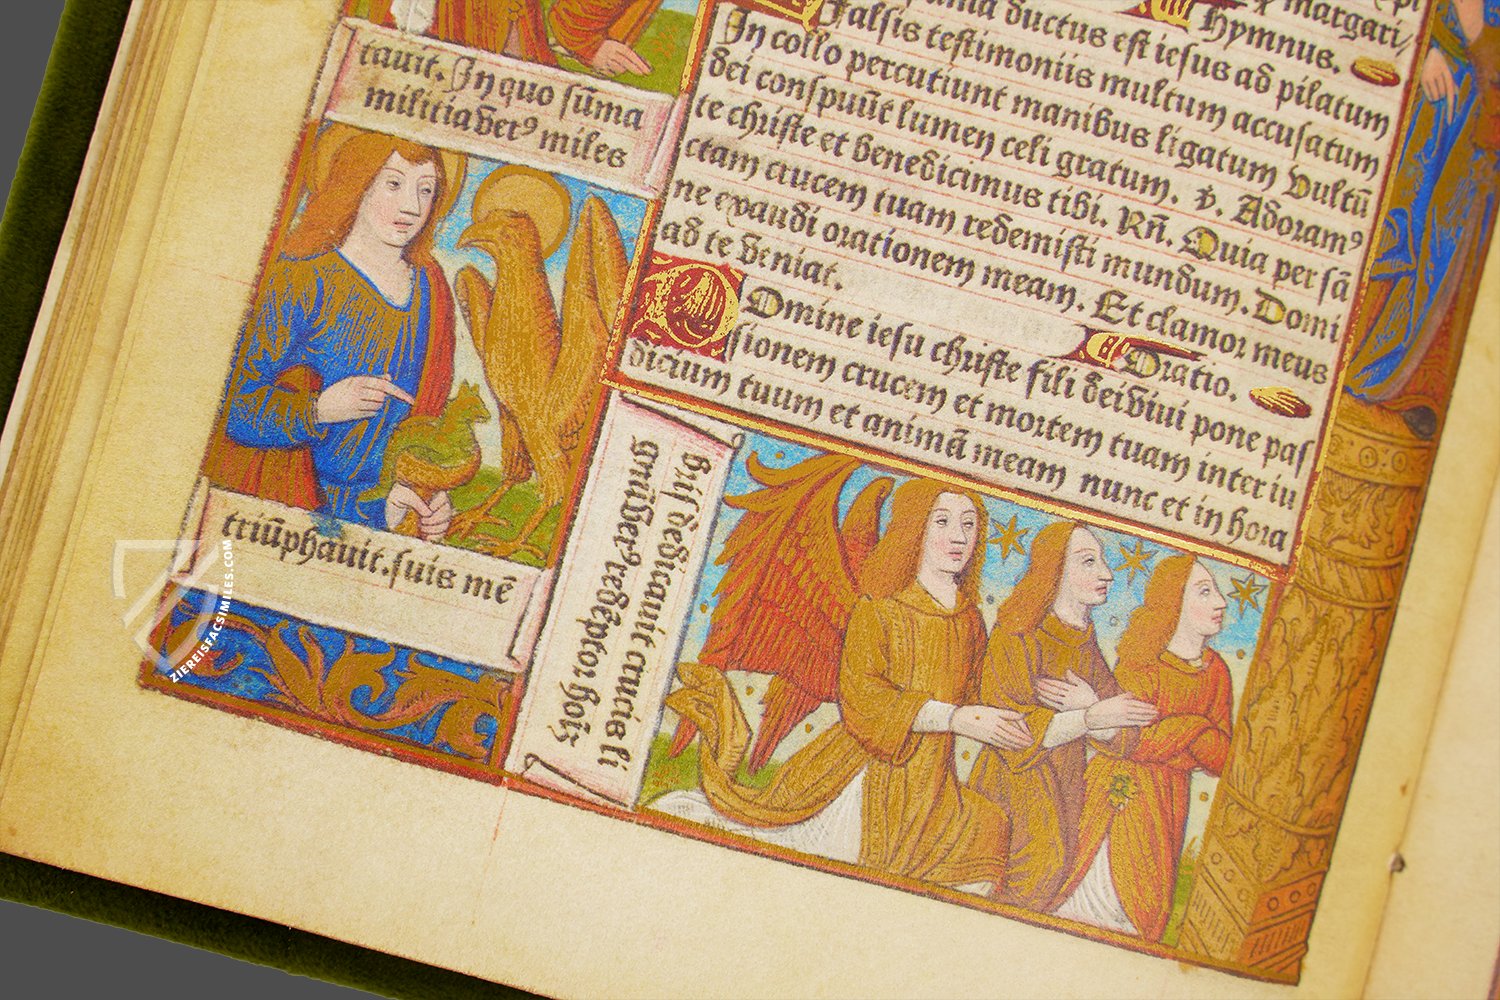 tauit. In quo sūma
militiaṽetꝰ miles
triūphauit. suis mē
bris dedicauit crucis li
redēptor
ductus est iesus ad pilatum
Hymnus.
margari
Falsis testimoniis multum accusatum
In collo percutiunt manibus ligatum vultū
dei conspuūt lumen celi gratum. ꝟ. Adoramꝰ
te christe et benedicimus tibi. Rn̄. Quia per sā
ctam crucem tuam redemisti mundum. Domi
ne exaudi orationem meam. Et clamor meus
ad te veniat.
Oratio.
Domine iesu christe fili dei viui pone pas
sionem crucem et mortem tuam inter iu
dicium tuum et animā meam nunc et in hora
ZIEREISFACSIMILES.COM